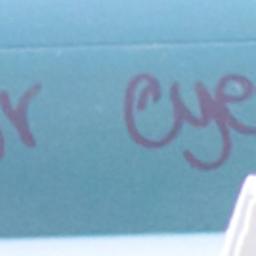 r eye